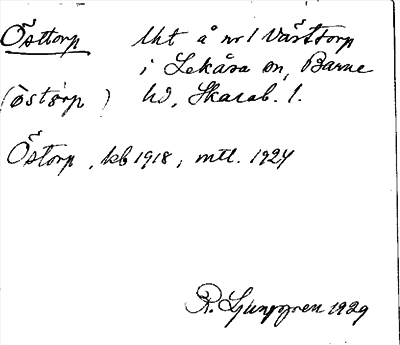 Östtorp lht å nr 1 Västtorp
i Lekåsa sn, Barne
(östòrp) hd, Skarab. l.
Östorp, kb 1918, mtl. 1924
R. Ljunggren 1929